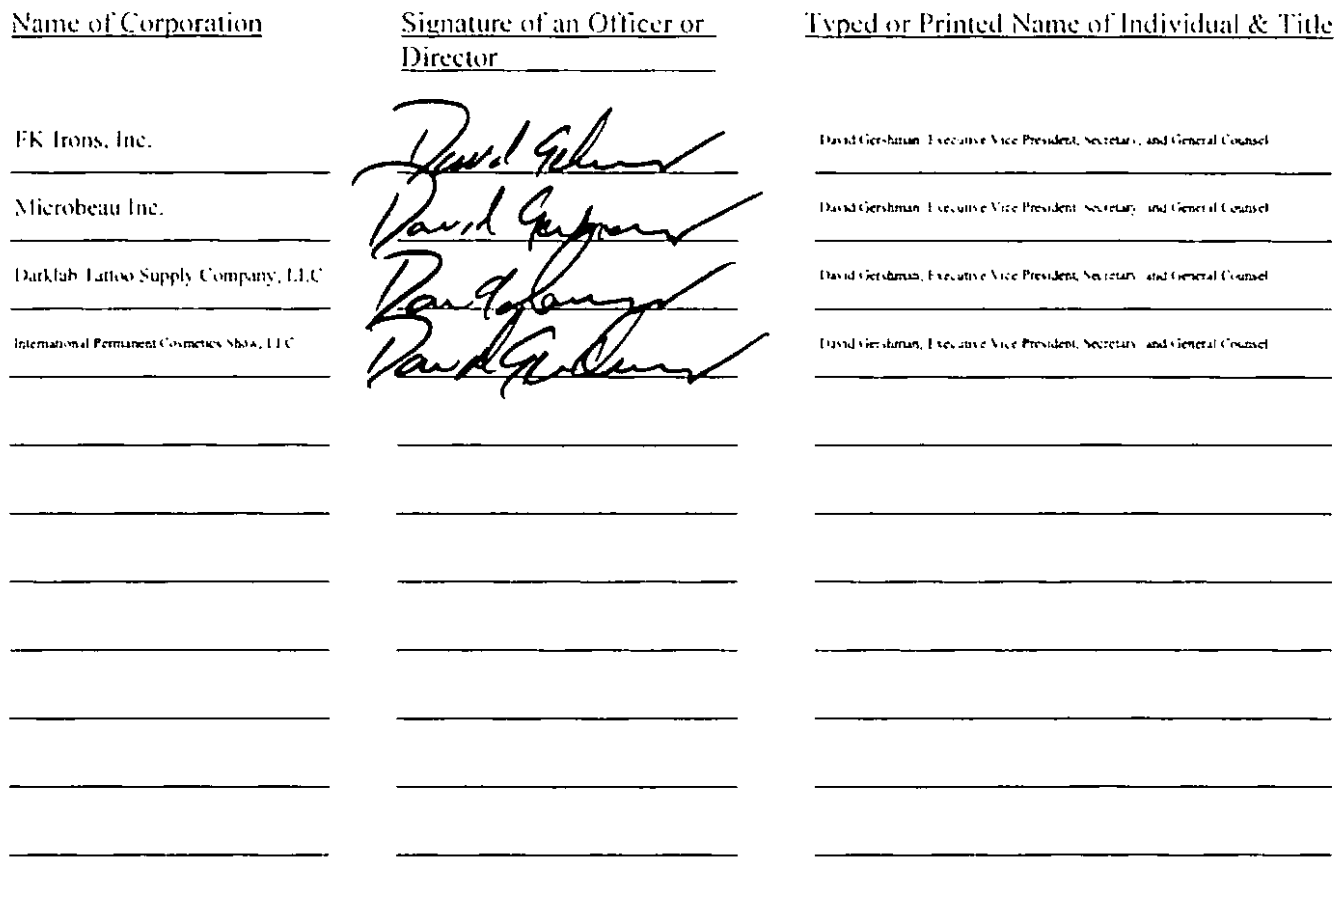 Name of Corporation Signature of an Officer or Director Typed or Printed Name of Individual & Title
FK Irons, Inc. David Gershman David Gershman, Executive Vice President, Secretary, and General Counsel
Microbeau Inc. David Gershman David Gershman, Executive Vice President, Secretary, and General Counsel
Darklab Tattoo Supply Company, LLC David Gershman David Gershman, Executive Vice President, Secretary, and General Counsel
International Permanent Cosmetics Show, LLC David Gershman David Gershman, Executive Vice President, Secretary, and General Counsel